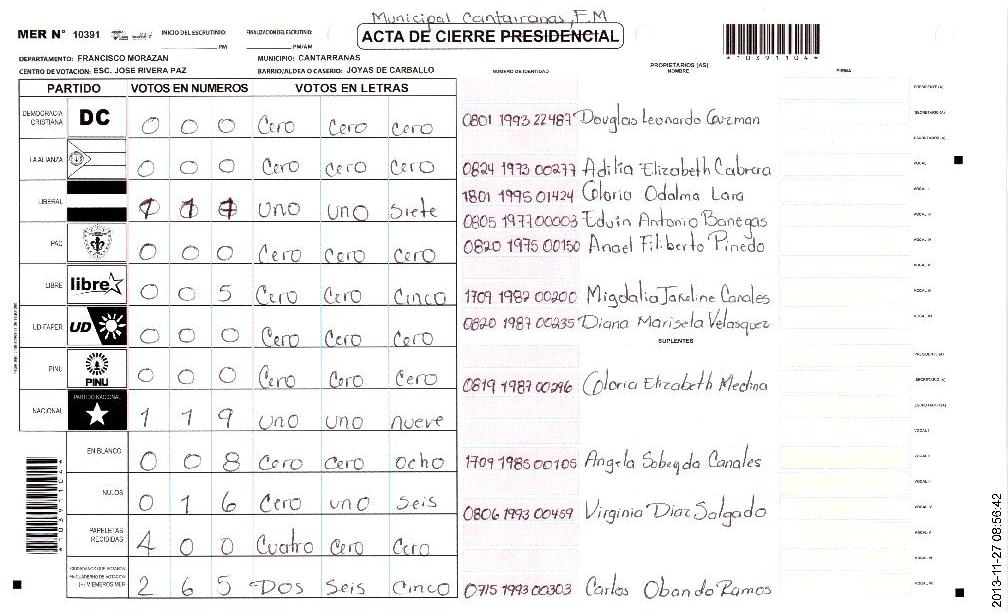 Municipal Cantarranas, F.M
MER N° 10391 INICIO DEL ESCRUTINIO: PM FINALIZACION DEL ESCRUTINIO: PM/AM
ACTA DE CIERRE PRESIDENCIAL
*10391104*
DEPARTAMENTO: FRANCISCO MORAZAN MUNICIPIO: CANTARRANAS
CENTRO DE VOTACION: ESC. JOSE RIVERA PAZ BARRIO/ALDEA O CASERIO: JOYAS DE CARBALLO
NUMERO DE IDENTIDAD PROPIETARIOS (AS) NOMBRE FIRMA
PARTIDO VOTOS EN NUMEROS VOTOS EN LETRAS
DEMOCRACIA CRISTIANA DC 0 0 0 Cero Cero Cero
LA ALIANZA 0 0 0 Cero Cero Cero
LIBERAL 1 1 7 uno uno siete
PAC 0 0 0 Cero Cero Cero
LIBRE libre 0 0 5 Cero Cero Cinco
UD-FAPER UD 0 0 0 Cero Cero Cero
PINU PINU 0 0 0 Cero Cero Cero
NACIONAL PARTIDO NACIONAL 1 1 9 uno uno nueve
EN BLANCO 0 0 8 Cero Cero ocho
NULOS 0 1 6 Cero uno seis
PAPELETAS RECIBIDAS 4 0 0 Cuatro Cero Cero
CIUDADANOS QUE VOTARON EN CUADERNO DE VOTACION (+) MIEMBROS MER 2 6 5 Dos seis cinco
0801 1993 22487 Douglas Leonardo Guzman
0824 1973 00277 Adilia Elizabeth Cabrera
1801 1995 01424 Gloria Odalma Lara
0805 1977 00003 Edwin Antonio Banegas
0820 1975 00150 Anael Filiberto Pinedo
1709 1982 00200 Migdalia Jakeline Canales
0820 1987 00235 Diana Marisela Velasquez
SUPLENTES
0819 1987 00296 Gloria Elizabeth Medina
1709 1985 00105 Angela Sobeyda Canales
0806 1993 00459 Virginia Diaz Salgado
0715 1993 00303 Carlos Obando Ramos
PRESIDENTE (A)
SECRETARIO (A)
ESCRUTADOR (A)
VOCAL
VOCAL I
PRESIDENTE (A)
SECRETARIO (A)
ESCRUTADOR (A)
VOCAL I
*10391104*
2013-11-27 08:56:42